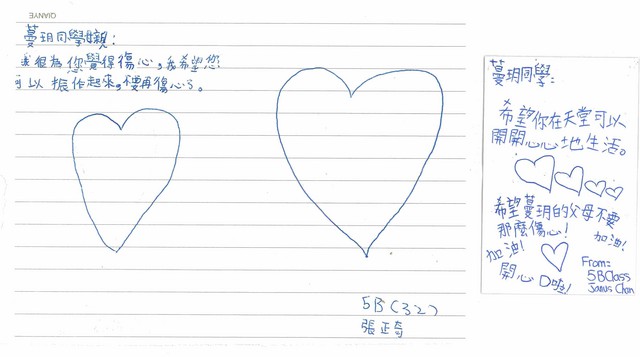 QIANYE
蔓玥同學媽親:
我很為您覺得傷心,我希望您
可以振作起來,不要再傷心了。
5B(32)
張正奇
蔓玥同學:
希望你在天堂可以
開開心心地生活。
希望蔓玥的父母不要
那麼傷心!
加油!
加油!
開心D啦!
From:
5BClass
Janus Chan